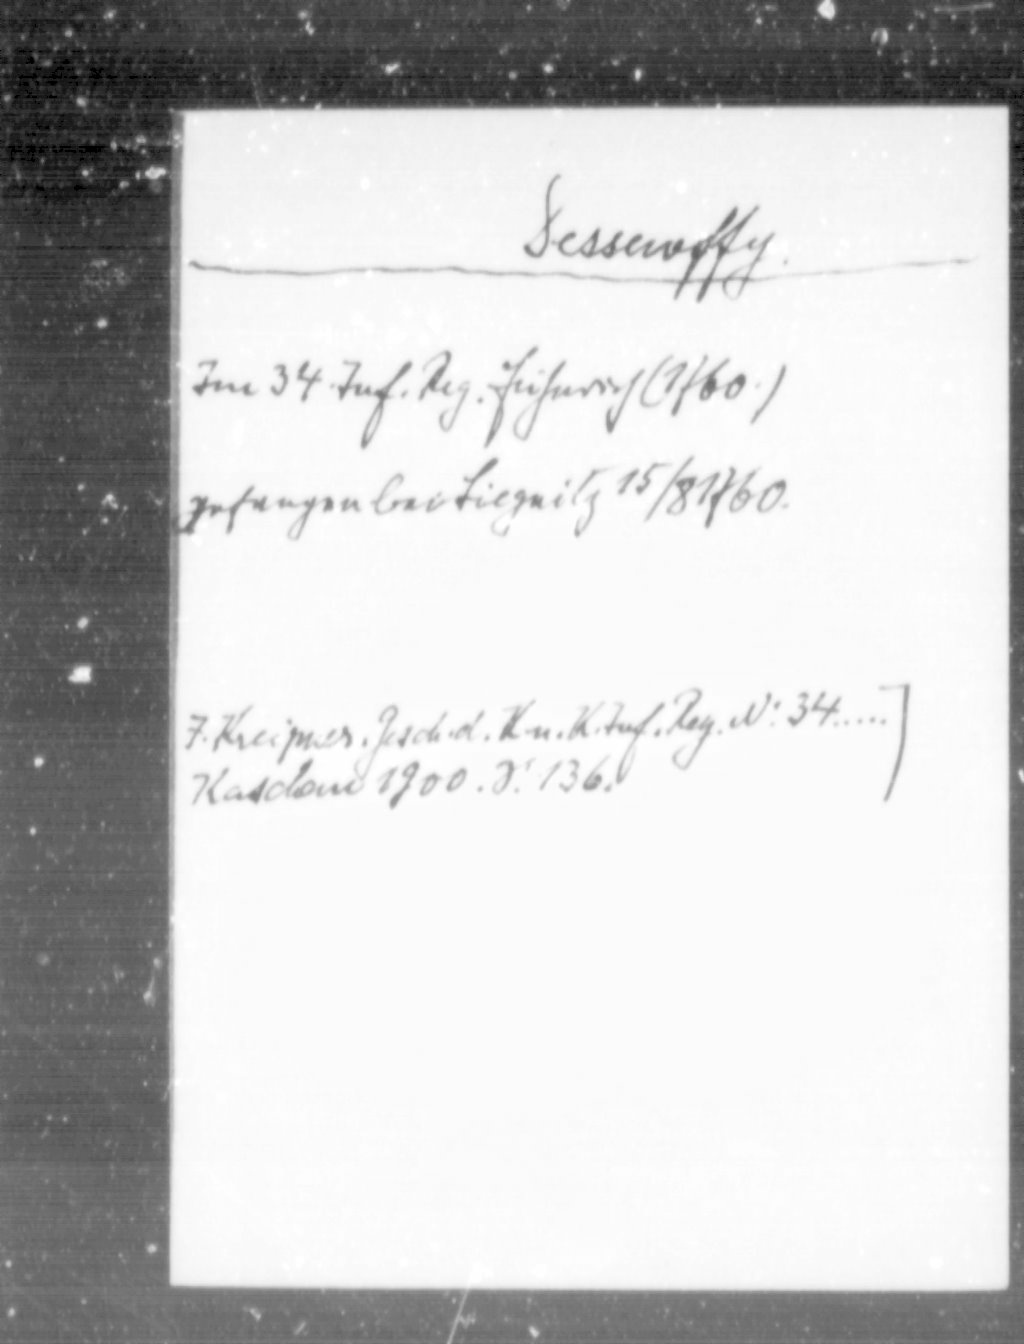 Dessewffy.
Im 34. Inf. Reg. Fähnrich (1760.)
gefangen bei Liegnitz 15/8 1760.
J. Kreipner. Gesch. d. K. u. K. Inf. Reg. No. 34.....]
Kaschau 1900. S. 136.